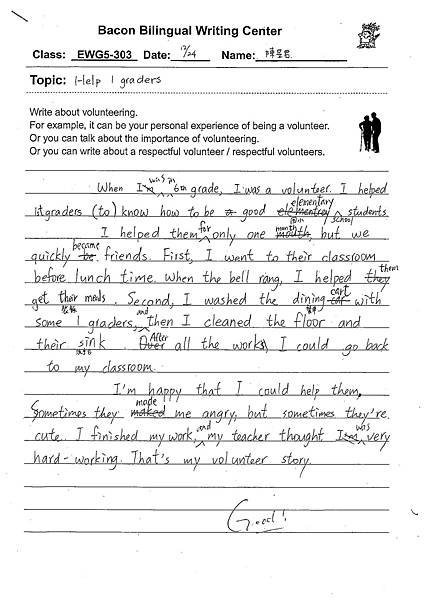 Bacon Bilingual Writing Center
Class: EWG5-303 Date: 12/24 Name: 陳
Topic: Help 1 graders
Write about volunteering.
For example, it can be your personal experience of being a volunteer.
Or you can talk about the importance of volunteering.
Or you can write about a respectful volunteer / respectful volunteers.
was in
When I 6th grade, I was a volunteer. I helped
elementary
1st graders (to) know how to be a good elementray students
school
for month
I helped them only one mouth, but we
became
quickly be friends. First, I went to their classroom
them
before lunch time. When the bell rang, I helped they
cart
get their meals. Second, I washed the dining car with
餐車
and
some 1 graders, then I cleaned the floor and
After
their sink. Over all the works, I could go back
to my classroom.
I'm happy that I could help them,
made
Sometimes they maked me angry, but sometimes they're
and was
cute. I finished my work, my teacher thought I very
hard-working. That's my volunteer story.
Good!